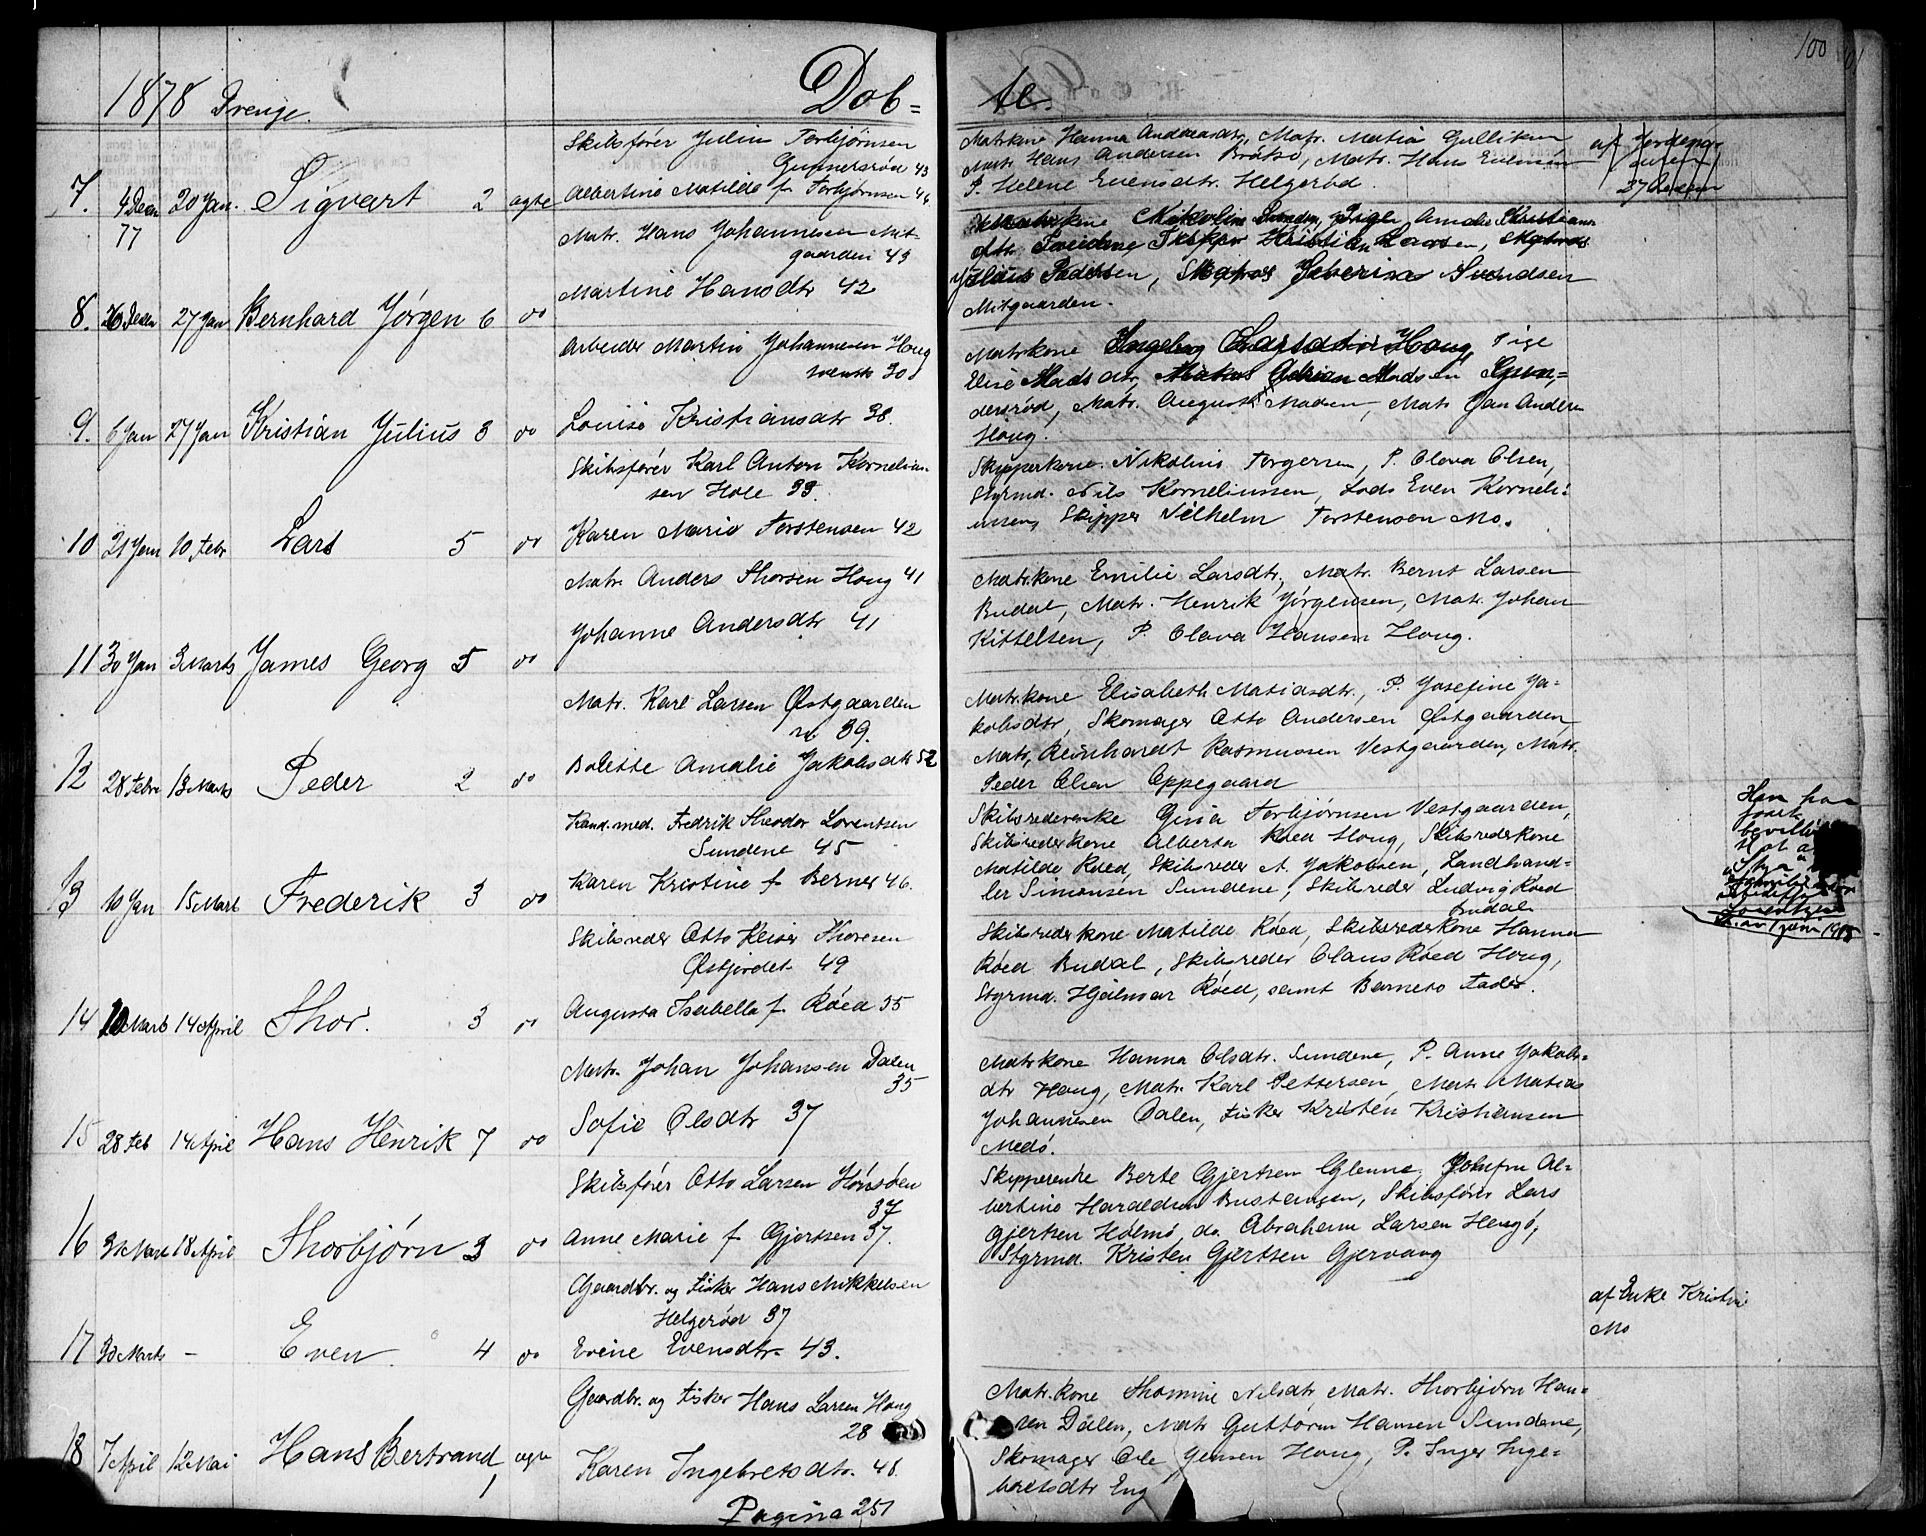 1878 Drenge.
Dob=
te.
100
7. 4 Decn 77 20 Jan. Sigvart 2 ægte
Skibsfører Julin Torbjørnsen
Gunnersrød 43
Albertine Matilde f. Torbjørnsen 46.
Matrkone Hanna Andreasdtr, Matr. Matia Gulliksen
Matr Hans Andersen Bråtø, Matr. Hans Evensen
P. Helene Evensdtr. Helgerød.
8. 26 Decn 27 Jan Bernhard Jørgen 6 do
Matr. Hans Johannesen Mit-
gaarden 43
Martine Hansdtr 42
Kristian Larsen,
Pedersen, Severin Svendsen
Mitgaarden.
9. 6 Jan 27 Jan Kristian Julius 3 do
Arbeider Martin Johannesen Houg
svensk 30
Louise Kristiansdtr 38.
Matrkone Ingeborg Larsdatter Houg, Pige
Elise Madsdtr, Adrian Madsen Gun=
dersrød, Matr. August Madsen, Matr Jan Andersen
Houg.
10 21 Jan 10 Febr Lars 5 do
Skibsfører Karl Anton Kornelius-
sen Hole 33.
Karen Marie Torstensen 42
Skipperkone Nikoline Torgersen, P. Olava Olsen,
Styrmd. Nils Korneliussen, Lods Even Korneli=
ussen, Skipper Vilhelm Torstensen Mo.
11 30 Jan 3 Marts James Georg 5 do
Matr Anders Thorsen Houg 41
Johanne Andersdtr 41
Matr.kone Emilie Larsdtr, Matr. Bernt Larsen
Budal, Matr. Henrik Jørgensen, Matr. Johan
Kittelsen, P. Olava Hansen Houg.
12 28 Febr 13 Marts Peder 2 do
Matr. Karl Larsen Østgaarden
39.
Bolette Amalie Jakobsdtr 52
Matr.kone Elisabeth Matiasdtr., P. Josefine Ja=
kobsdtr, Skomager Otto Andersen Østgaarden
Matr, Reinhardt Rasmussen Vestgaarden, Matr.
Peder Olsen Oppegaard
13 10 Jan 15 Mart Frederik 3 do
Kand. med. Fredrik Theodor Lorentsen
Sundene 45
Karen Kristine f. Berner 46.
Skibsrederenke Gusia Torbjørnsen Vestgaarden,
Skibsrederkone Alberta Røed Houg, Skibsrederkone
Matilde Røed, Skibsreder A. Jakobsen, Landhand=
ler Simonsen Sundene, Skibsreder Ludvig Røed
Budal
Han har
14 10 Mart 14 April Thor. 3 do
Skibsreder Otto Keiser Thoresen
Østfjordet 49
Augusta Isabella f. Røed 55
Skibsrederkone Matilde Røed, Skibsrederkone Hanna
Røed Budal, Skibsreder Olaus Røed Houg,
Styrmd. Hjalmar Røed, samt Barnets Fader.
15 28 Feb 14 April Hans Henrik 7 do
Matr. Johan Johansen Dalen
35
Sofie Olsdtr 37
Matrkone Hanna Olsdtr. Sundene, P. Anne Jakobs=
dtr Houg, Matr. Karl Pettersen, Matr Matias
Johannesen Dalen, Fisker Kristen Kristiansen
Medø.
16 31 Mart 18 April Thorbjørn 3 do
Skibsfører Otto Larsen Hønsøen
37
Anne Marie f Gjertsen 37.
Skipperenke Berte Gjertsen Glenne, Jomfru Al=
bertine Haraldsen Bustangen, Skibsfører Lars
Gjertsen Holmø, do Abraham Larsen Hengø,
Styrmd. Kristen Gjertsen Gjervaag
17 30 Marts - Even. 4 do
Gaardbr. og Fisker Hans Mikkelsen
Helgerød 37
Evine Evensdtr. 43.
af Enke Kristin
Mo
18 7 April 12 Mai Hans Bertrand 1 ægte
Gaardbr. og Fisker Hans Larsen Houg
28
Karen Ingebretsdtr. 48.
Matr.kone Thomine Nilsdtr Matr. Thorbjørn Han=
sen Dalen, Matr Guttorm Hansen Sundene,
Skomager Ole Jensen Houg, P. Inger Inge=
bretsdtr Eng
Pagina 251